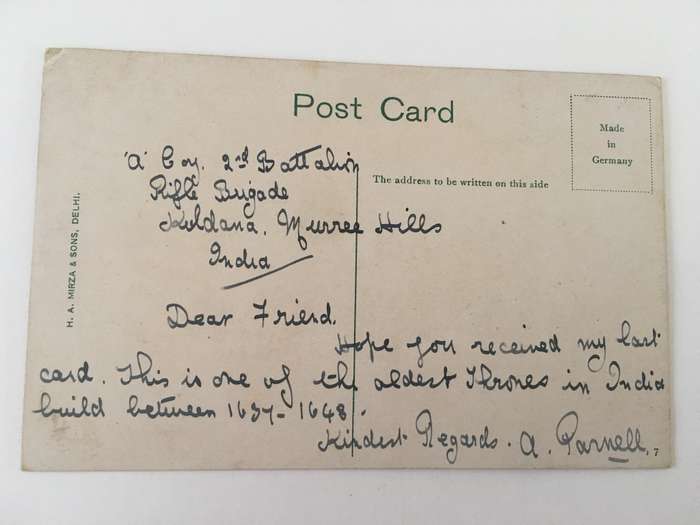 Post Card
Made
in
Germany
The address to be written on this side
H. A. MIRZA & SONS, DELHI.
'A' Coy. 2nd Battalion
Rifle Brigade
Kuldana, Murree Hills
India
Dear Friend.
Hope you received my last
card. This is one of the oldest Thrones in India
build between 1637-1648.
Kindest Regards. A. Parnell.
7